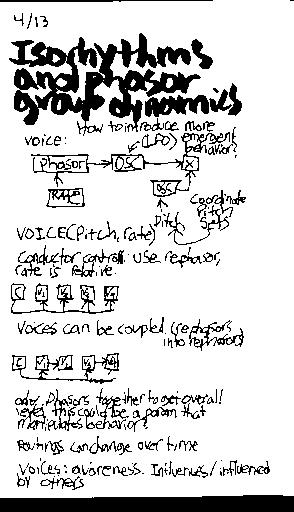 4/13
Isorhythms
and phasor
group dynamics
How to introduce more
emergent
behavior?
voice:
(LFO)
Phasor
OSC
X
RATE
OSC
Pitch
Coordinate
Pitch
Sets
VOICE(Pitch, rate)
Conductor control. Use rephasor,
rate is relative.
C V1 V2 V3 V4
Voices can be coupled (rephasors
into rephasors)
C V1 V2 V3 V4
add phasors together to get overall
level, this could be a param that
manipulates behavior?
routings can change over time
Voices: awareness. Influences/influenced
by others